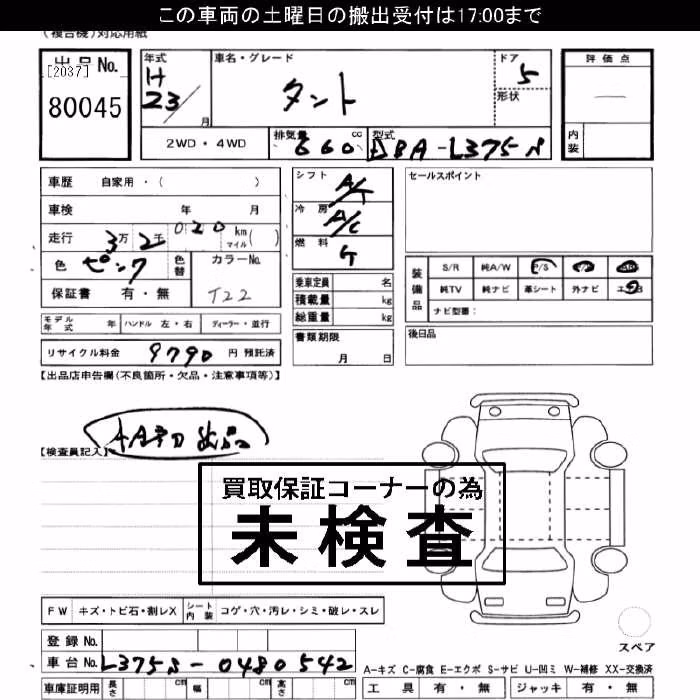 この車両の土曜日の搬出受付は17:00まで
(複合機)対応用紙
出品No.
[2037]
80045
年式
H
23/
月
車名・グレード
タント
ドア
5
形状
評価点
内装
2WD・4WD
排気量
660
cc
型式
DBA-L375S
車歴 自家用・( )
車検 年 月
走行 3万 2千 020 km マイル( )
色 ピンク 色替
カラーNo.
T22
保証書 有・無
シフト A/T
冷房 A/C
燃料 G
乗車定員 名
積載量 kg
総重量 kg
セールスポイント
装備品
S/R 純A/W P/S
純TV 純ナビ 革シート 外ナビ
ナビ型番:
モデル年式 年 ハンドル 左・右 ディーラー・並行
リサイクル料金 9790 円 預託済
書類期限
月 日
後日品
【出品店申告欄(不良箇所・欠品・注意事項等)】
出品
【検査員記入】
買取保証コーナーの為
未検査
FW キズ・トビ石・割レX シート内装 コゲ・穴・汚レ・シミ・破レ・スレ
スペア
登録No.
車台No. L375S-0480542
A-キズ C-腐食 E-エクボ S-サビ U-凹ミ W-補修 XX-交換済
車庫証明用 長さ cm 幅 cm 高さ cm
工具 有・無 ジャッキ 有・無